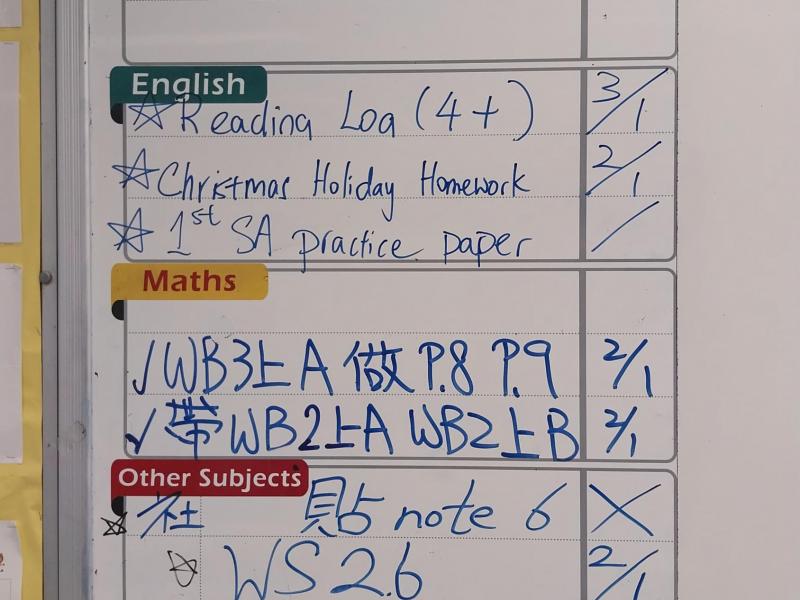 English
☆ Reading Log (4+) 3/1
☆ Christmas Holiday Homework 2/1
☆ 1st SA practice paper /
Maths
✓ WB3上A 做 P.8 P.9 2/1
✓ 帶 WB2上A WB2上B 2/1
Other Subjects
☆ 社 貼 note 6 X
☆ WS 2.6 2/1